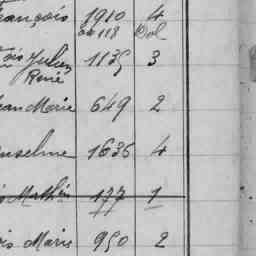 François 1910 4
ou 118 Vol
Julien 1135 3
René
Jean Marie 649 2
Anselme 1636 4
Mathieu 177 1
Marie 950 2